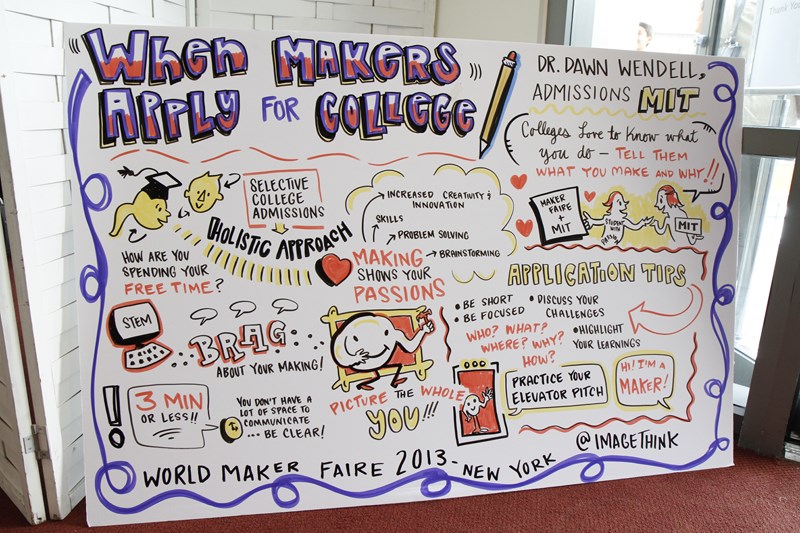 When MAKERS
APPLY FOR COLLEGE
DR. DAWN WENDELL,
ADMISSIONS MIT
Colleges love to know what
you do - TELL THEM
WHAT YOU MAKE AND WHY!!
MAKER
FAIRE
+
MIT
STUDENT
WITH
MIT
SELECTIVE
COLLEGE
ADMISSIONS
HOLISTIC APPROACH
HOW ARE YOU
SPENDING YOUR
FREE TIME?
INCREASED CREATIVITY &
INNOVATION
SKILLS
PROBLEM SOLVING
BRAINSTORMING
MAKING
SHOWS YOUR
PASSIONS
APPLICATION TIPS
• BE SHORT
• BE FOCUSED
• DISCUSS YOUR
CHALLENGES
• HIGHLIGHT
YOUR LEARNINGS
WHO? WHAT?
WHERE? WHY?
HOW?
STEM
BRAG
ABOUT YOUR MAKING!
PICTURE THE WHOLE
YOU!!!
PRACTICE YOUR
ELEVATOR PITCH
HI! I'M A
MAKER!
3 MIN
OR LESS!!
YOU DON'T HAVE A
LOT OF SPACE TO
COMMUNICATE
... BE CLEAR!
@IMAGETHINK
WORLD MAKER FAIRE 2013 - NEW YORK
Thank you